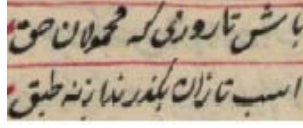 باش تا روزی که محمولان حق
اسب تازان بگذرند از نه طبق